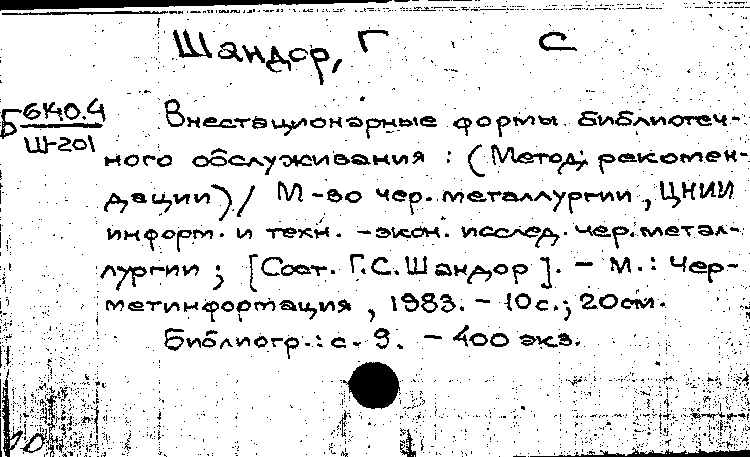 Шандор, Г С
Б 6Ч0.4
Ш-201
Внестационарные формы библиотеч-
ного обслуживания : (Метод. рекомен-
дации) / М-во чер. металлургии, ЦНИИ
информ. и техн. -экон. исслед. чер. метал-
лургии ; [Сост. Г.С. Шандор]. - М. : Чер-
метинформация, 1983. - 10 с.; 20 см.
Библиогр.: с. 9. - 400 экз.
10